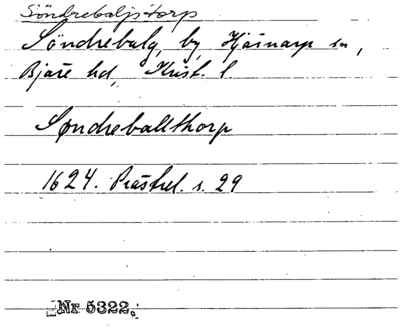 Söndrebaljstorp
Söndrebalg, by, Hjärnarp sn,
Bjäre hd, Krist. l.
Søndreballthorp
1624. Prästrel. s. 29
Nr 5322.